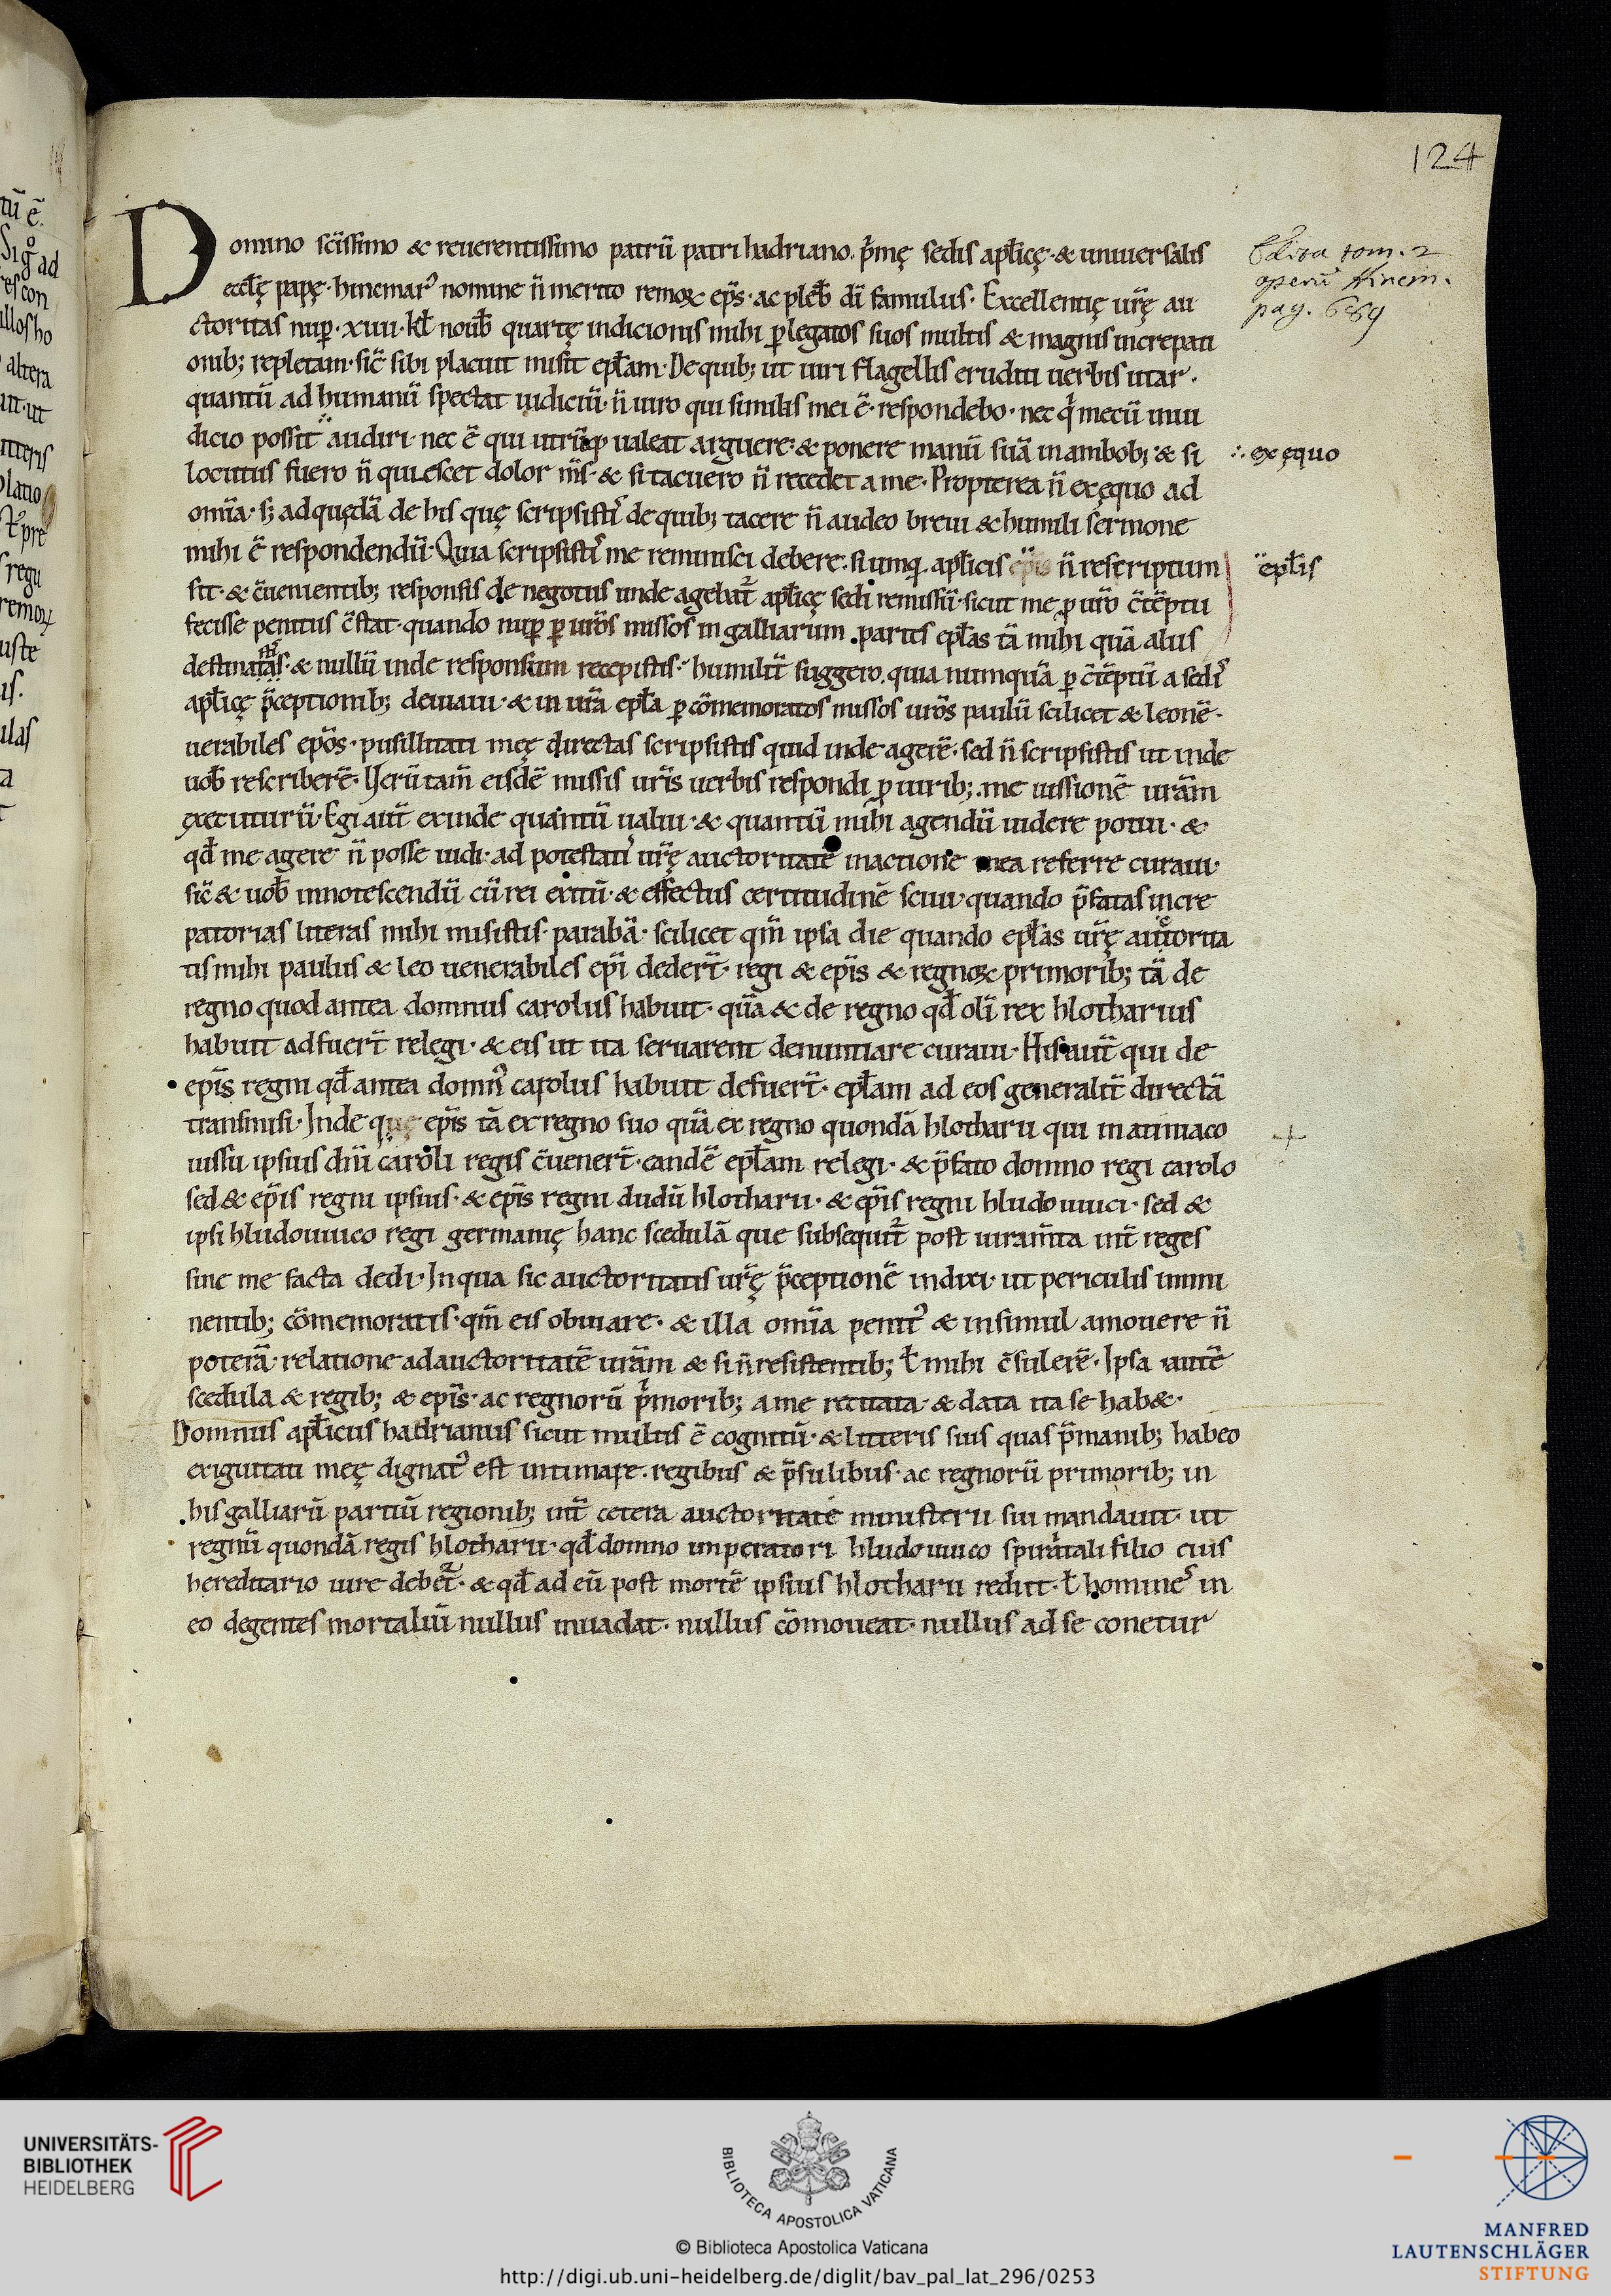 124
Domino sc̄issimo & reuerentissimo patrū patri hadriano. p̄mę sedis apłicę · & uniuersalis
eccłę papę · hincmar᾿ nomine n̄ merito remoꝝ ep̄s · ac pleb̄ dī famulus · Excellentię ur̄ę au
ctoritas nup̱ · xiiii · kł nouƀ quartę indicionis mihi p̱ legatos suos multis & magnis increpati
onib; repletam · sic̄ sibi placuit misit epłam · De quib; ut uiri flagellis eruditi uerbis utar ·
quantū ad humanū spectat iudiciū · n̄ uiro qui similis mei ē · respondebo · nec q̓ mecū in iu
dicio possit audiri · nec ē qui utrūq; ualeat arguere · & ponere manū suā in ambob; · & si
locutus fuero n̄ quiescet dolor m̄s · & si tacuero n̄ recedet a me · Propterea n̄ ex ęquo ad
om̄ia · s; ad quędā de his quę scripsistis de quib; tacere n̄ audeo breui & humili sermone
mihi ē respondendū · Quia scripsistis me reminisci debere · si umq. apłicis ep̄is n̄ rescriptum
sit · & c̄uenientib; responsis de negotiis unde agebat᷑ apłicę sedi remissū · sicut me p̱ ur̄o c̄tēptu
fecisse penitus c̄stat · quando nup̱ p̱ uros missos in galliarum partes epłas tā mihi quā aliis
destinatas · & nullū inde responsum recepistis · humilit̄ suggero, quia numquā p̱ c̄tēptū a sedis
apłicę p̄ceptionib; deuiaui · & in ur̄a epła p̱ cōmemoratos missos uros paulū scilicet & leonē ·
uerabiles ep̄os · pusillitati meę directas scripsistis quid inde agerē · sed n̄ scripsistis ut inde
uoƀ rescriberē · Uerū tam̄ eisdē missis ur̄is uerbis respondi p̱ uirib; me iussionē uram̄
executurū · Egi aut̄ exinde quantū ualui · & quantū mihi agendū uidere potui · &
qđ me agere n̄ posse uidi · ad potestatis ur̄ę auctoritatē in actione mea referre curaui ·
sic̄ & uoƀ innotescendū cū rei exitū · & effectus certitudinē sciui · quando p̄fatas incre
patorias literas mihi misistis · parabā · scilicet qm̄ ipsa die quando epłas ur̄ę autorita
tis mihi paulus & leo uenerabiles ep̄i dedert̄ · regi & ep̄is & regnoꝝ primorib; tā de
regno quod antea domnus carolus habuit · quā & de regno qđ olī rex hlotharius
habuit adfuert̄ relegi · & eis ut ita seruarent denuntiare curaui · His aut̄ qui de
ep̄is regni qđ antea domn᾿ carolus habuit defuert̄ · epłam ad eos generalit̄ directā
transmisi · Inde quę ep̄is tā ex regno suo quā ex regno quondā hlotharii qui in atiniaco
iussu ipsius dn̄i caroli regis c̄uenert̄ · eandē epłam relegi · & p̄fato domno regi carolo
sed & ep̄is regni ipsius · & ep̄is regni dudū hlotharii · & ep̄is regni hludouuici · sed &
ipsi hludouuico regi germanię hanc scedulā que subsequit᷑ post iuram̄ta int̄ reges
sine me facta dedi · In qua sic auctoritatis ur̄ę p̄ceptionē indixi · ut periculis immi
nentib; cōmemoratis · qm̄ eis obuiare · & illa om̄ia penit᾿ & insimul amouere n̄
poterā · relatione ad auctoritatē uram̄ & si n̄ resistentib; ł mihi c̄sulerē · Ipsa autē
scedula & regib; & ep̄is · ac regnorū p̓morib; a me recitata · & data ita se hab& ·
Domnus apłicus hadrianus sicut multis ē cognitū · & litteris suis quas p̄manib; habeo
exiguitati meę dignat᾿ est intimare · regibus & p̄sulibus · ac regnorū primorib; in
his galliarū partiū regionib; int̄ cetera auctoritate ministerii sui mandauit · ut
regnū quondā regis hlotharii · qđ domno imperatori hludouuico spiritali filio eius
hereditario iure debet᷑ · & qđ ad eū post mortē ipsius hlotharii rediit · ł homines in
eo degentes mortaliū nullus inuadat · nullus cōmoueat · nullus ad se conetur
Edita tom. 2
operū Hincm.
pag. 689
∴ ex ęquo
epłis
tū ē.
Sigͦ ad
res con
illos ho
altera
litteris
latio
ł pre
regu
remoꝝ
uste
us.
ulas
UNIVERSITÄTS-
BIBLIOTHEK
HEIDELBERG
BIBLIOTECA APOSTOLICA VATICANA
© Biblioteca Apostolica Vaticana
http://digi.ub.uni-heidelberg.de/diglit/bav_pal_lat_296/0253
MANFRED
LAUTENSCHLÄGER
STIFTUNG